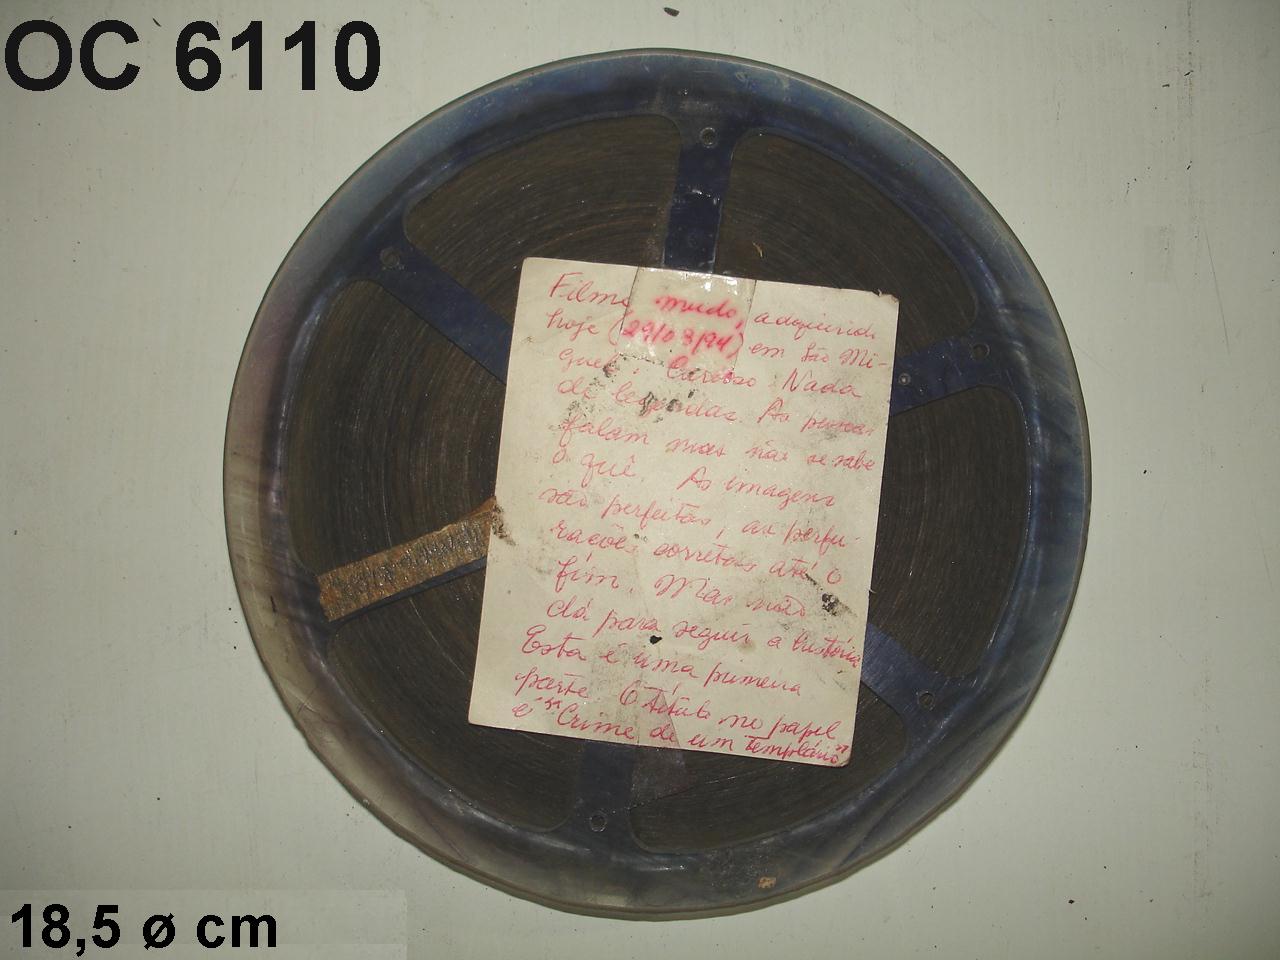 OC 6110
Filme mudo, adquirido
hoje (29/03/94) em São Mi-
guel. Cardoso. Nada
de legendas. As pessoas
falam mas não se sabe
o quê. As imagens
são perfeitas, as perfu-
rações corretas até o
fim. Mas não
dá para seguir a história
Esta é uma primeira
parte. O título no papel
é "Crime de um Templário"
18,5 ø cm